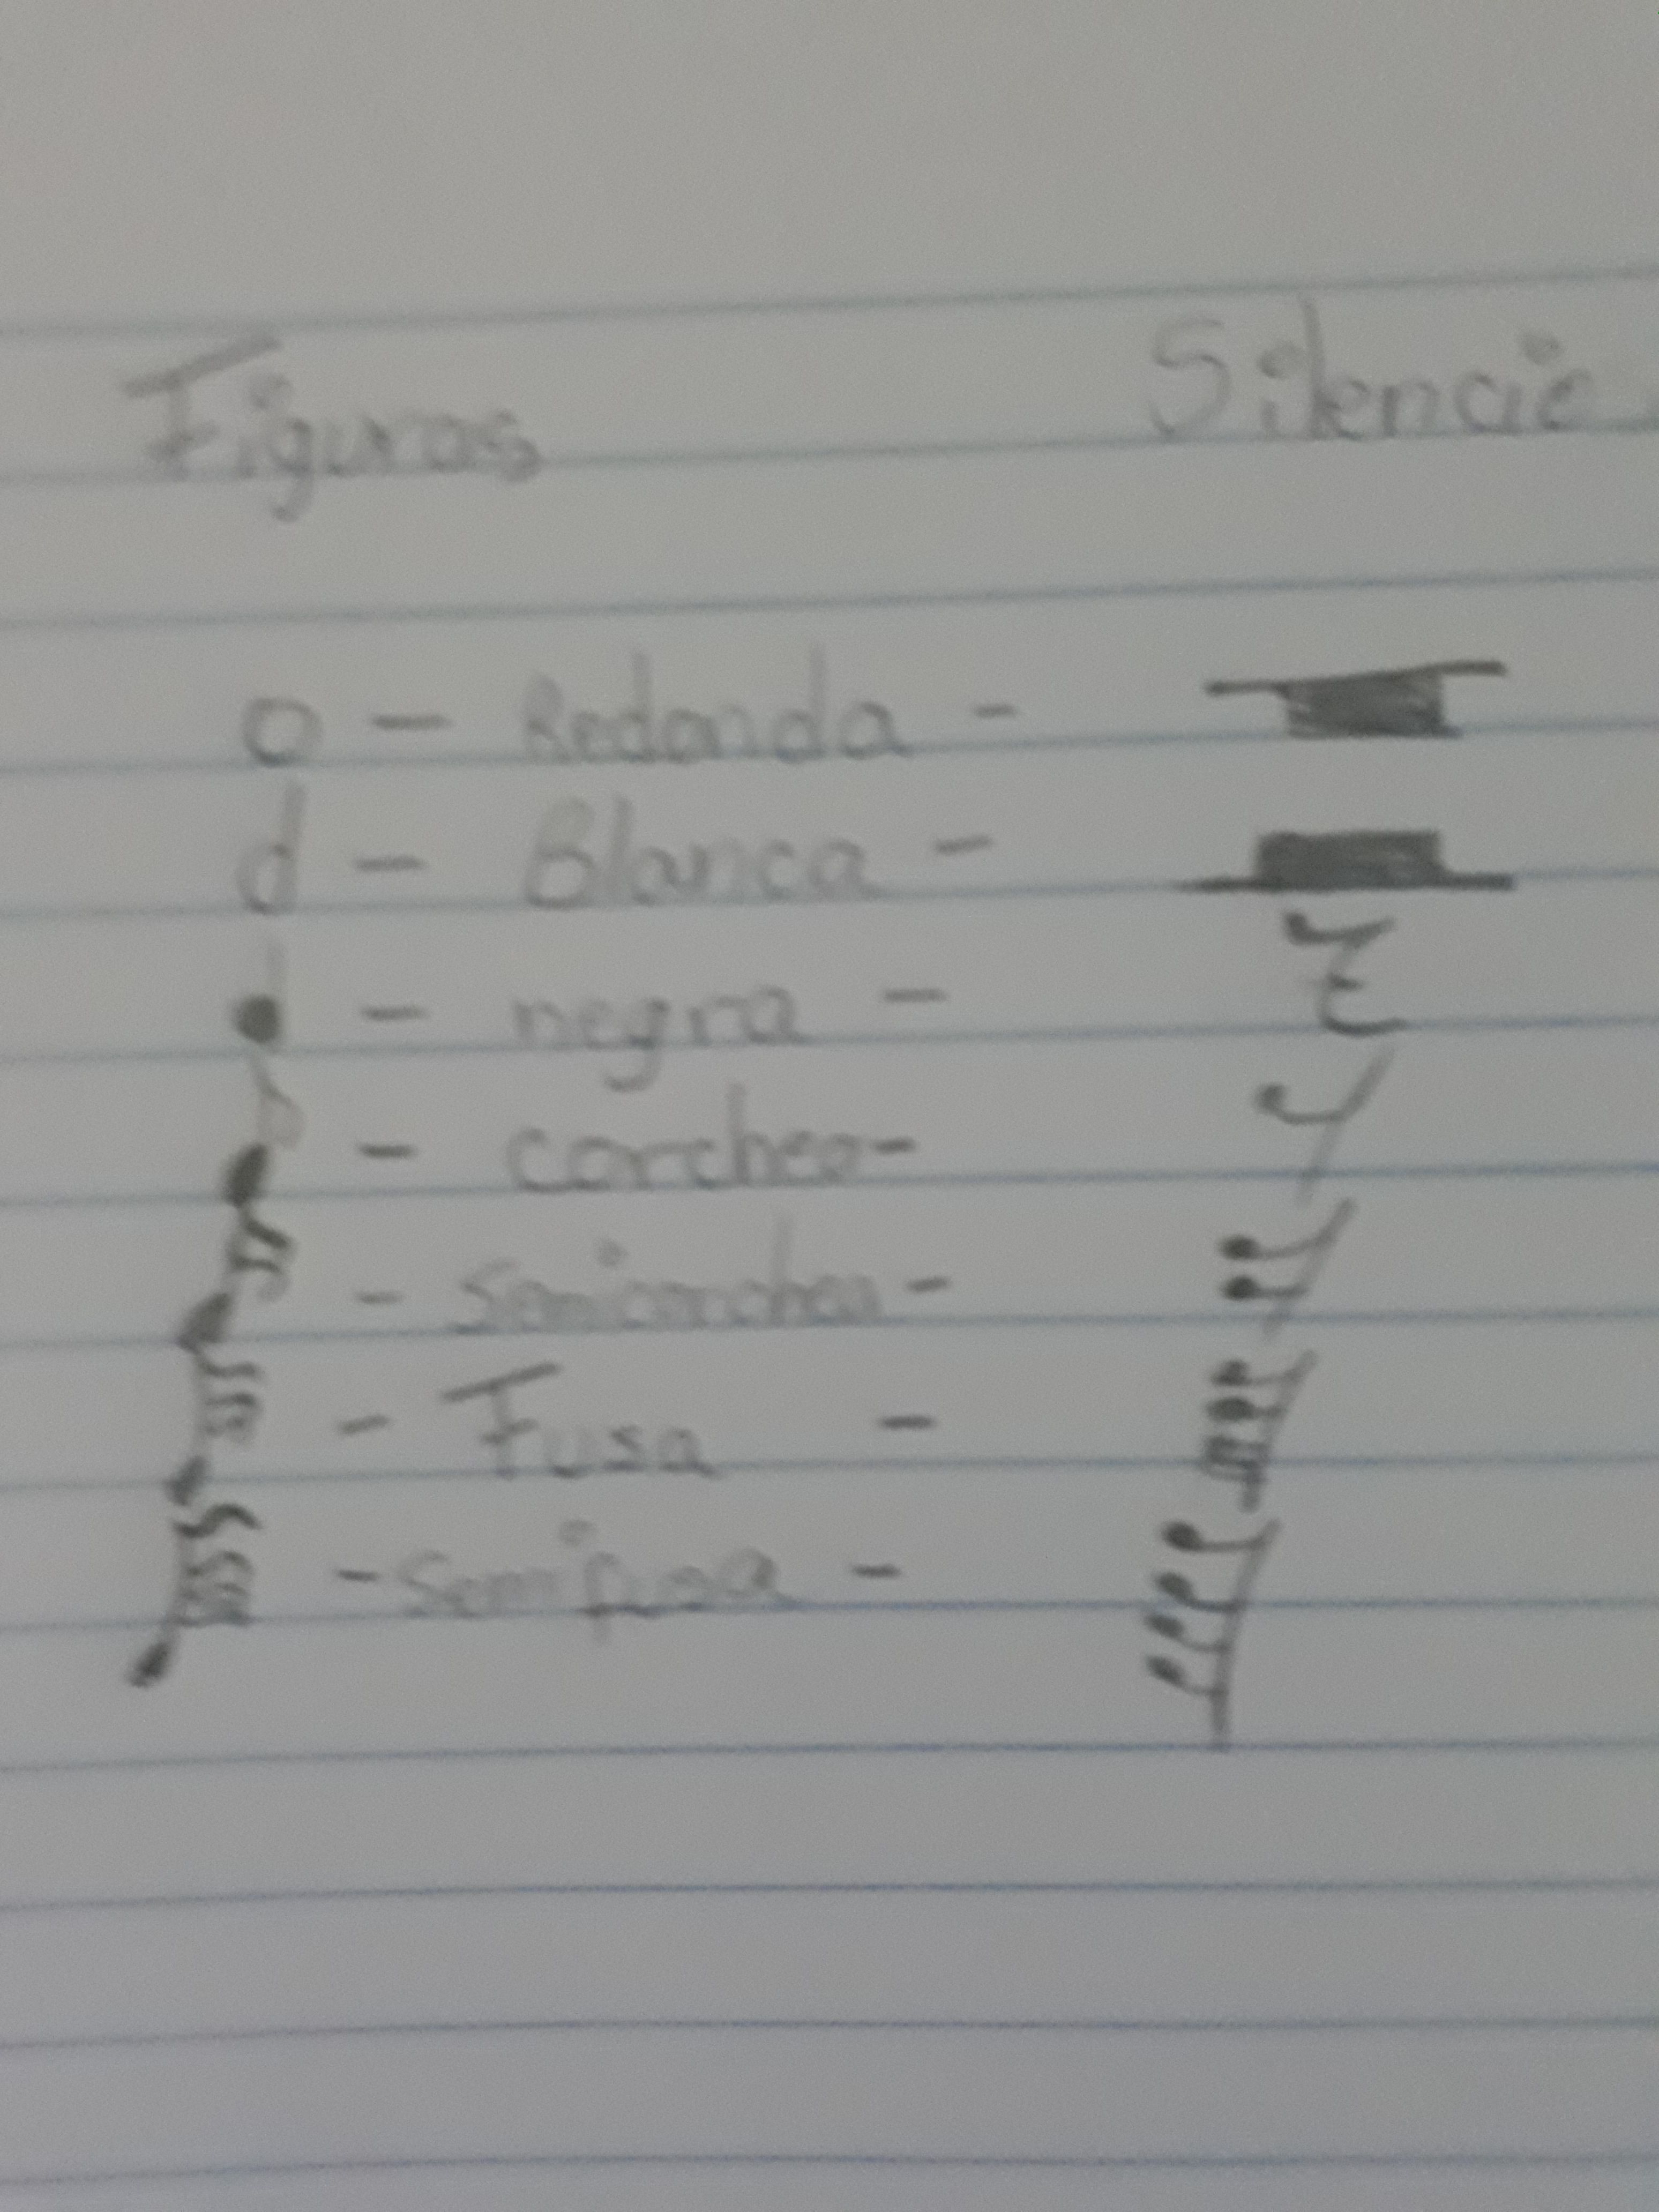 Figuras Silencio
o - Redonda -
- Blanca -
- negra -
- corchea -
- Semicorchea -
- Fusa -
- Semifusa -